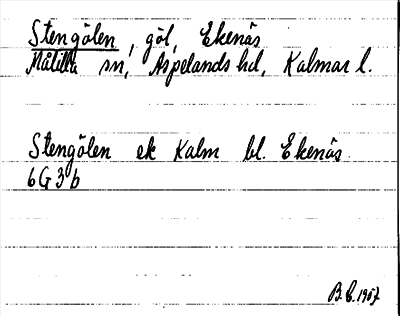 Stengölen, göl, Ekenäs
Målilla sn, Aspelands hd, Kalmar l.
Stengölen ek Kalm bl. Ekenäs
6G3b